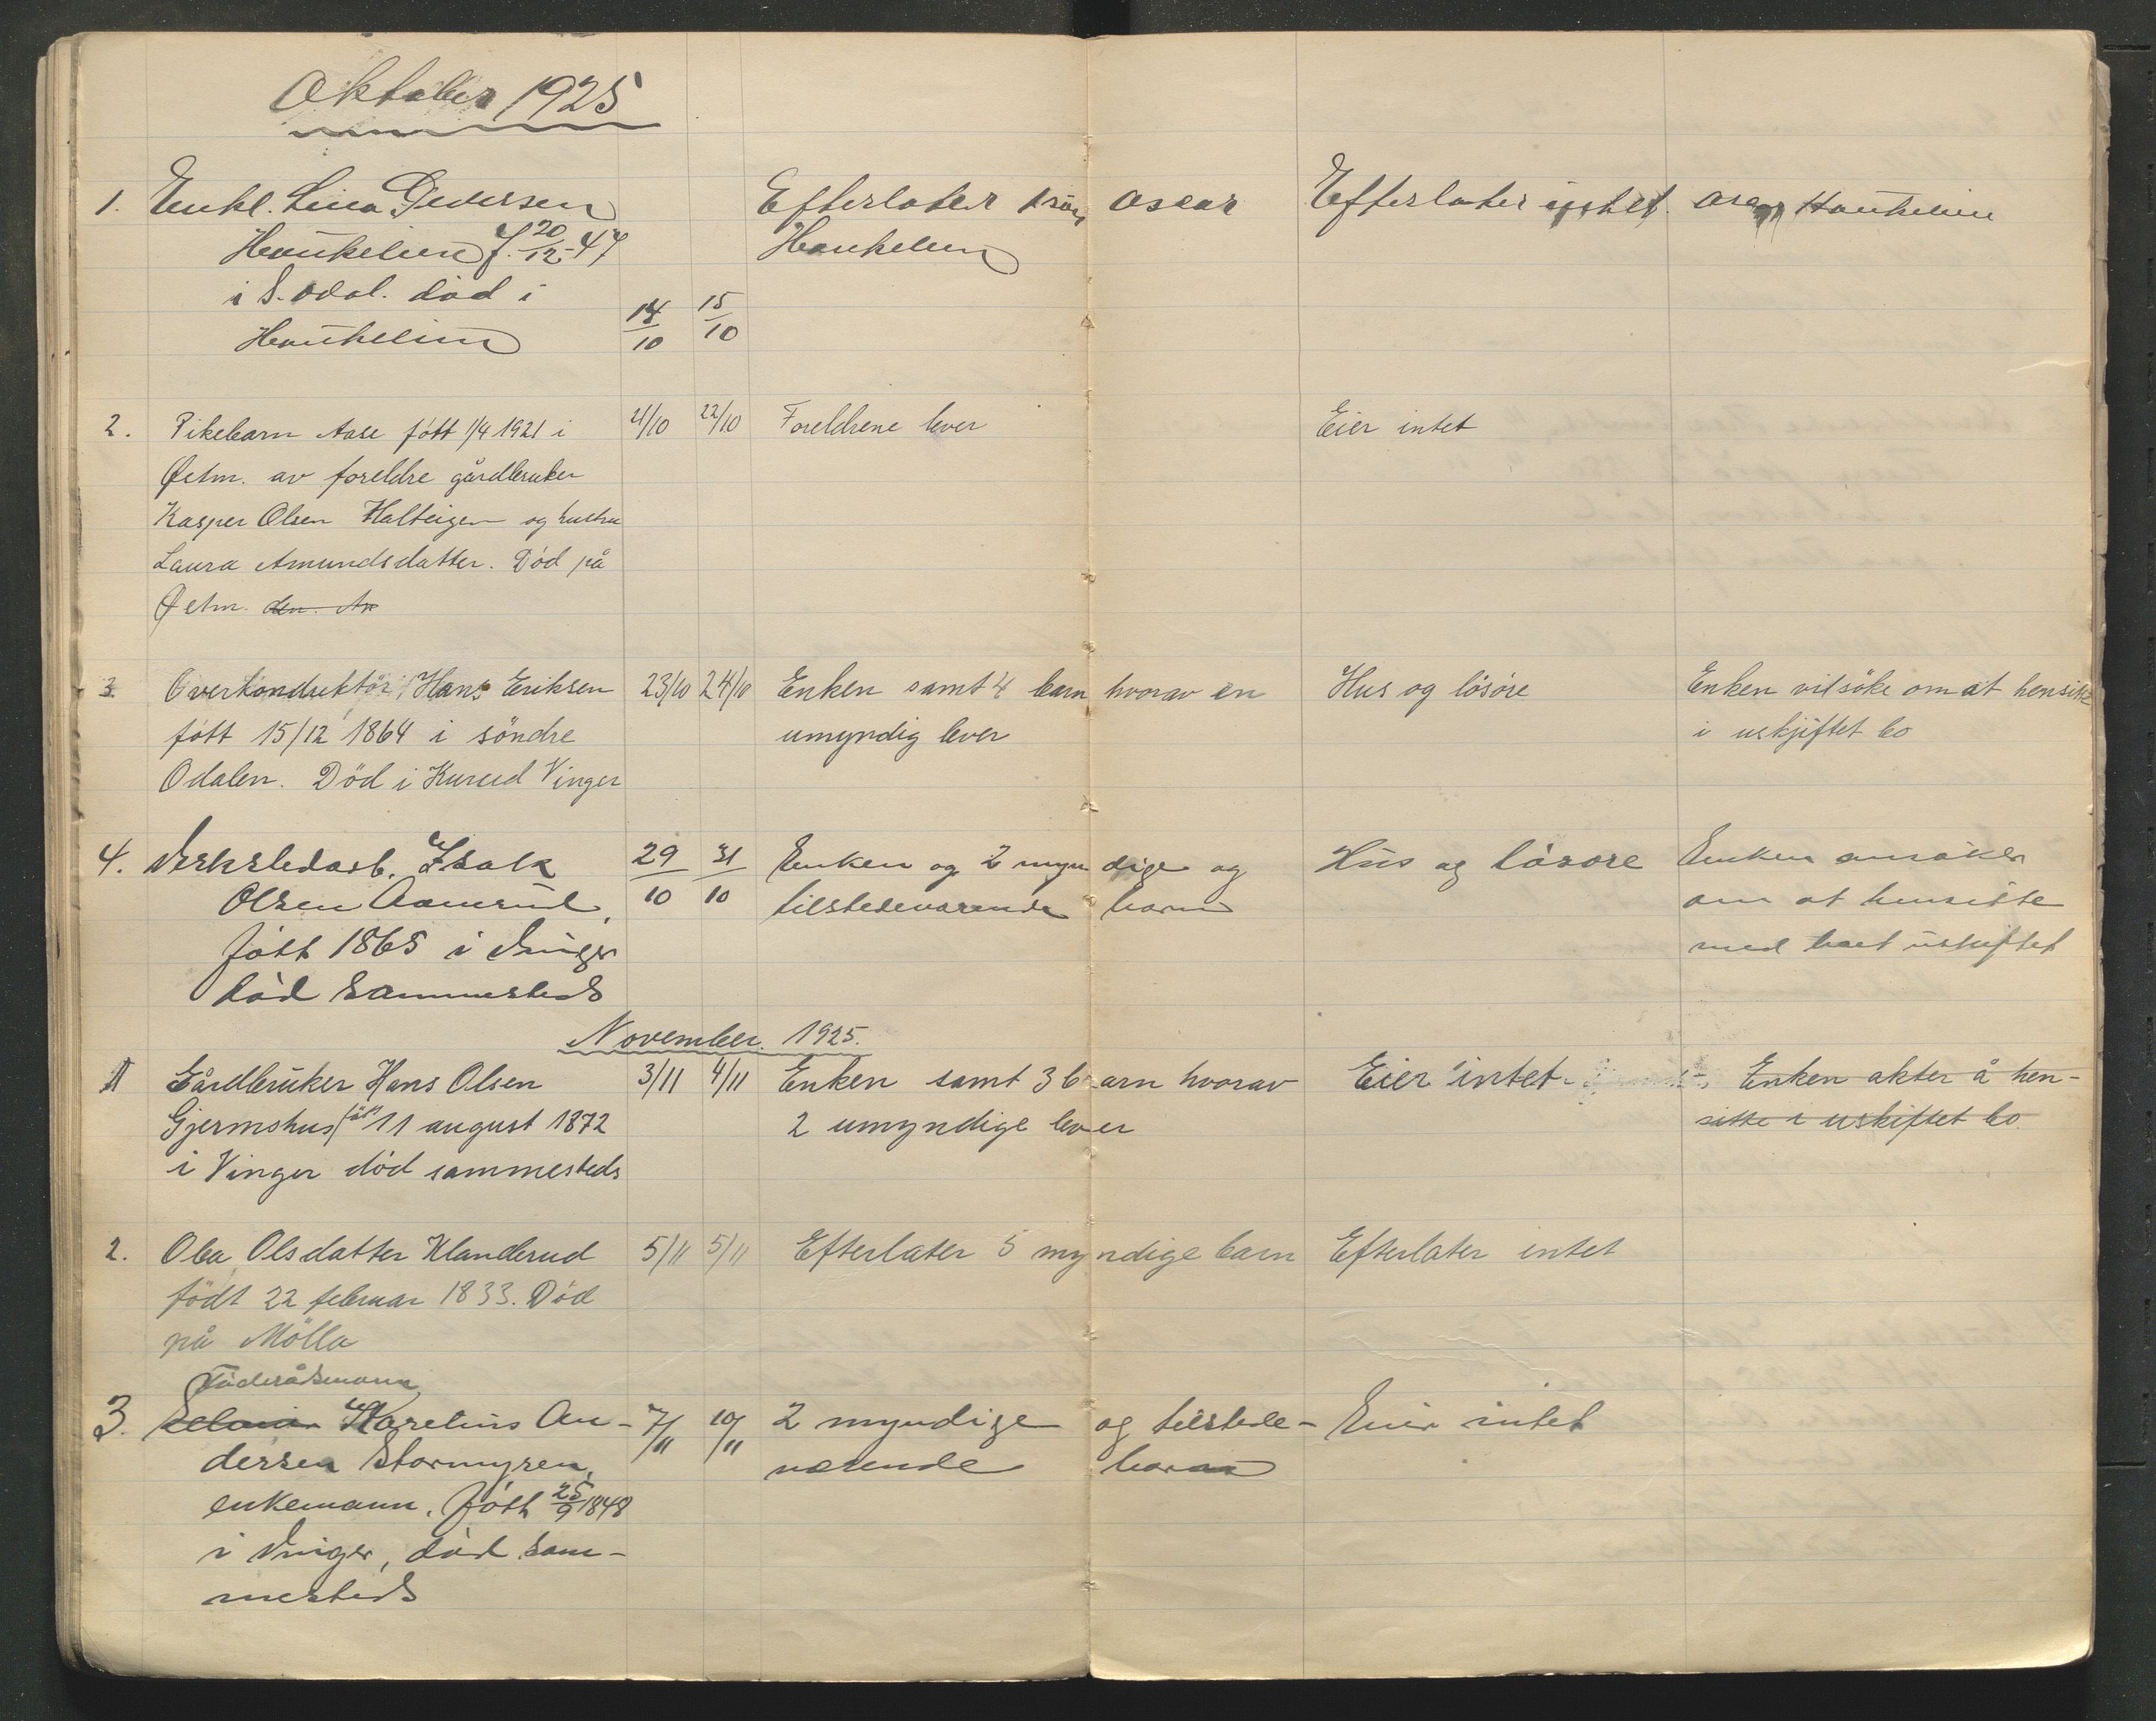 Oktober 1925
1. Enkl. Lina Pedersen
Haukelien f. 20/12-47
i S. Odal. død i
Haukelien
14/10 15/10
Efterlater 1 sön Oscar
Haukelien
Efterlater intet. Oscar Haukelien
2. Pikebarn Aase fött 1/4 1921 i
Østm. av foreldre gårdbruker
Kasper Olsen Halteigen og hustru
Laura Amundsdatter. Död på
Østm. den
21/10 22/10 Foreldrene lever
Eier intet
3. Overkonduktör Hans Eriksen
fött 15/12 1864 i söndre
Odalen. Död i Kurud Vinger
23/10 24/10 Enken samt 4 barn hvorav en
umyndig lever
Hus og lösöre
Enken vil söke om at hensitte
i uskjiftet bo
4. Verkstedarb. Isak
Olsen Aamerud,
fött 1865 i Vinger
död sammesteds
29/10 31/10
Enken og 2 myndige og
tilstedeværende barn
Hus og lösöre
Enken ansöker
om at hensitte
med boet uskiftet
November 1925.
1 Gårdbruker Hans Olsen
Gjermshus född 11 august 1872
i Vinger död sammesteds
3/11 4/11 Enken samt 3 barn hvorav
2 umyndige lever
Eier intet
Enken akter å hen-
sitte i uskiftet bo.
2. Olea Olsdatter Klanderud
födt 22 februar 1833. Död
på Mölla
5/11 5/11 Efterlater 5 myndige barn
Efterlater intet
Föderådsmann
3. Karelius An-
dersen Stormyren,
enkemann. fött 25/9 1848
i Vinger, död sam-
mesteds
7/11 10/11
2 myndige og tilstede-
værende barn
Eier intet